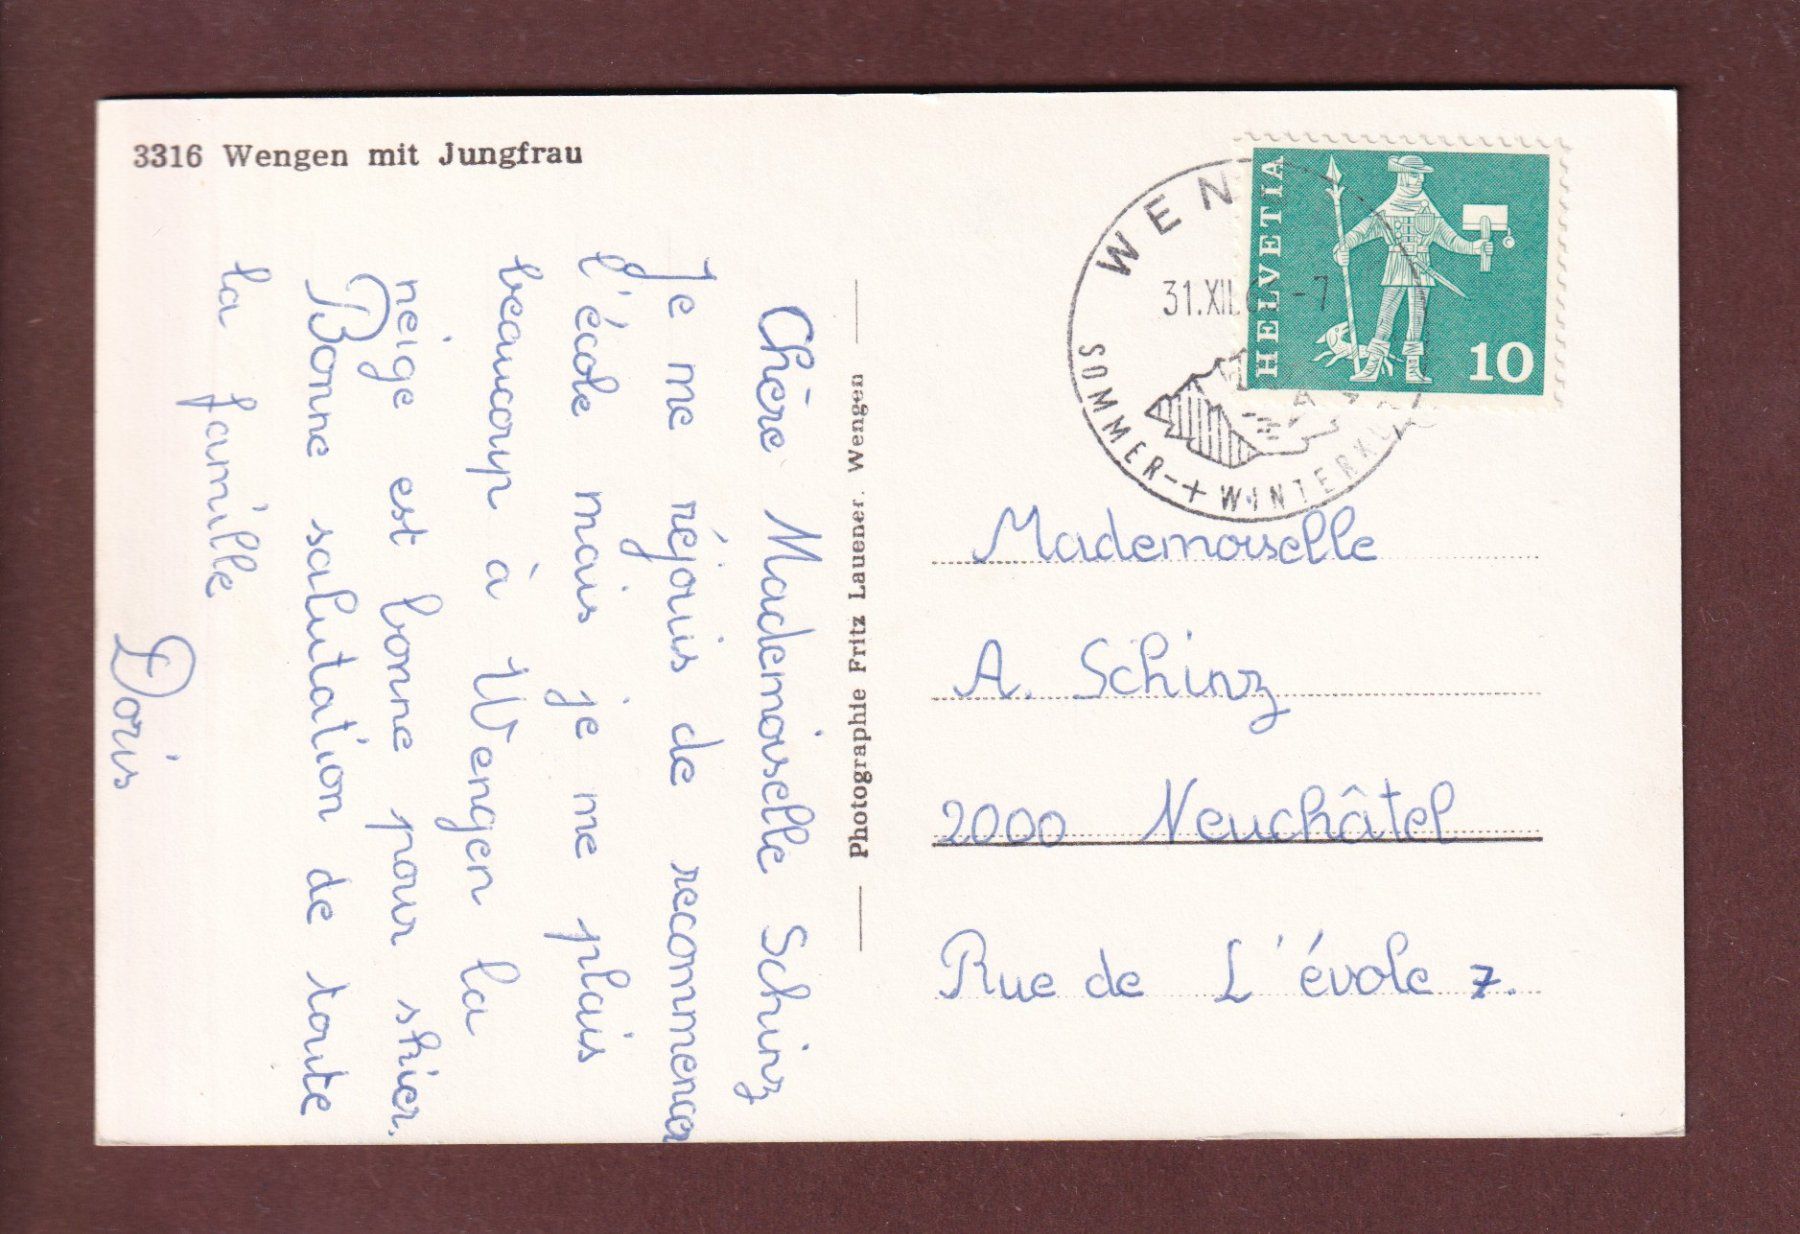 3316 Wengen mit Jungfrau
Chère Mademoiselle Schinz
Je me réjouis de recommencer
l'école mais je me plais
beaucoup à Wengen la
neige est bonne pour skier.
Bonne salutation de toute
la famille
Doris
Photographie Fritz Lauener. Wengen
WEN
31.XII.6 -7
SOMMER- + WINTERKU
HELVETIA
10
Mademoiselle
A. Schinz
2000 Neuchâtel
Rue de L'évole 7.